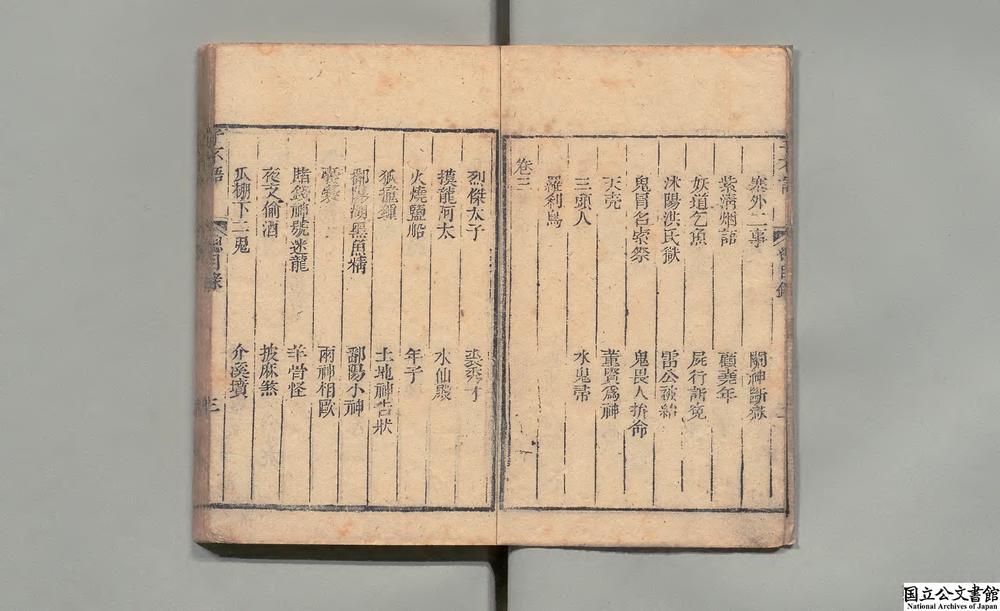 塞外二事 關神斷獄
紫清烟語 顧堯年
妖道乞魚 屍行訴冤
沭陽洪氏獄 雷公被紿
鬼冒名索祭 鬼畏人拚命
天壳 董賢爲神
三頭人 水鬼帚
羅刹鳥
卷三
烈傑太子 裘秀才
摸龍阿太 水仙殿
火燒鹽船 年子
狐撞鐘 土地神告狀
鄱陽湖黑魚精 鄱陽小神
囊囊 兩神相毆
賭錢神號迷龍 羊骨怪
夜叉偷酒 披麻煞
瓜棚下二鬼 介溪墳
子不語 總目錄 三
国立公文書館
National Archives of Japan